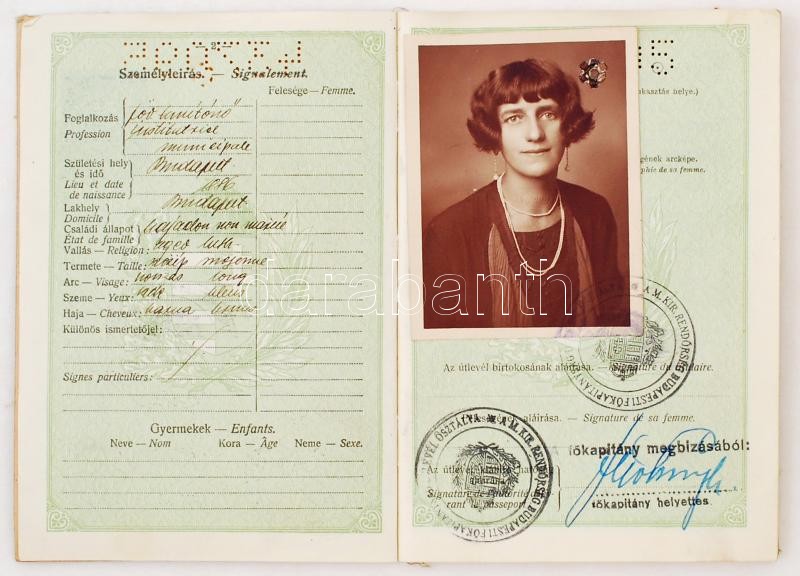 — 2 —
Személyleírás. — Signalement.
Felesége — Femme.
Foglalkozás
Profession
Institutrice
municipale
Születési hely és idő
Lieu et date de naissance
Budapest
Lakhely
Domicile
Budapest
Családi állapot
État de famille
hajadon non mariée
Vallás — Religion:
Termete — Taille: közép moyenne
Arc — Visage: hosszas long
Szeme — Yeux: kék bleus
Haja — Cheveux: barna bruns
Különös ismertetőjel:
Signes particuliers:
Gyermekek — Enfants.
Neve — Nom Kora — Âge Neme — Sexe.
akasztás helye.)
gének arcképe.
phie de sa femme.
Az útlevél birtokosának aláírása. — Signature du titulaire.
A M. KIR. RENDŐRSÉG BUDAPESTI FŐKAPITÁNYSÁG
aláírása. — Signature de sa femme.
ÚTLEVÉL OSZTÁLYA ★ A M. KIR. RENDŐRSÉG BUDAPESTI FŐKAPITÁNYSÁG
főkapitány megbízásából:
Az útlevelet kiállító hatóság aláírása
Signature de l'autorité
rant le passeport
főkapitány helyettes
darabanth